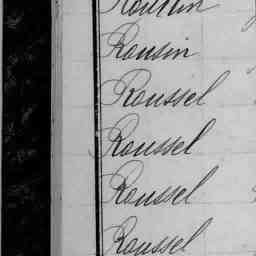 Rousin
Roussel
Roussel
Roussel
Roussel